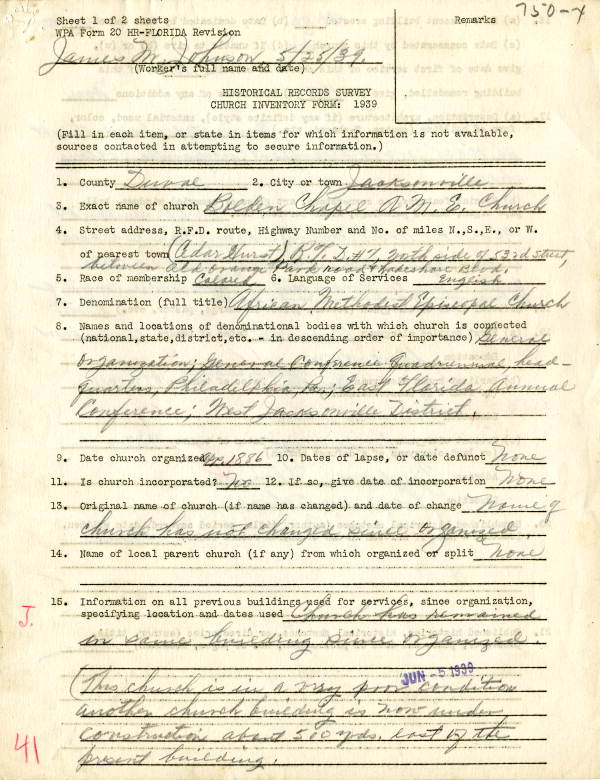 Sheet 1 of 2 sheets
Remarks
750-4
WPA Form 20 HR-FLORIDA Revision
James M. Johnson, 5/25/39
(Worker's full name and date)
HISTORICAL RECORDS SURVEY
CHURCH INVENTORY FORM: 1939
(Fill in each item, or state in items for which information is not available,
sources contacted in attempting to secure information.)
1. County Duval 2. City or town Jacksonville
3. Exact name of church Bolden Chapel A. M. E. Church
4. Street address, R.F.D. route, Highway Number and No. of miles N.,S.,E., or W.
of nearest town (Cedar Hurst) R.F.D. #7, north side of 53rd Street,
between Old Orange Park road & Lakeshore Blvd.
5. Race of membership Colored 6. Language of Services English
7. Denomination (full title) African Methodist Episcopal Church
8. Names and locations of denominational bodies with which church is connected
(national,state,district,etc. - in descending order of importance) General
organization; General Conference Quadrennial, head-
quarters, Philadelphia, Pa.; East Florida Annual
Conference; West Jacksonville District.
9. Date church organized 1886 10. Dates of lapse, or date defunct None
11. Is church incorporated? No 12. If so, give date of incorporation None
13. Original name of church (if name has changed) and date of change Name of
church has not changed since organized.
14. Name of local parent church (if any) from which organized or split None
15. Information on all previous buildings used for services, since organization,
specifying location and dates used Church has remained
in same building since organized.
J.
JUN -5 1939
(This church is in a very poor condition
another church building is now under
construction about 500 yds. east of the
present building.
41